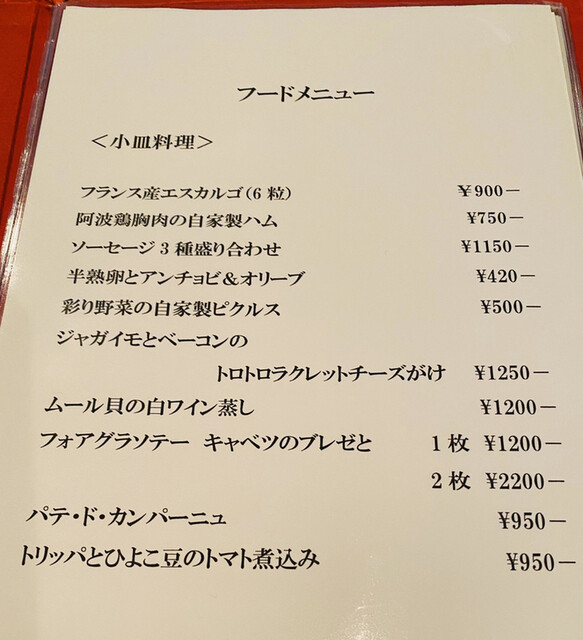 フードメニュー
＜小皿料理＞
フランス産エスカルゴ（6粒） ￥900－
阿波鶏胸肉の自家製ハム ¥750－
ソーセージ3種盛り合わせ ¥1150－
半熟卵とアンチョビ＆オリーブ ¥420－
彩り野菜の自家製ピクルス ¥500－
ジャガイモとベーコンの
トロトロラクレットチーズがけ ¥1250－
ムール貝の白ワイン蒸し ¥1200－
フォアグラソテー キャベツのブレゼと 1枚 ¥1200－
2枚 ¥2200－
パテ・ド・カンパーニュ ¥950－
トリッパとひよこ豆のトマト煮込み ¥950－